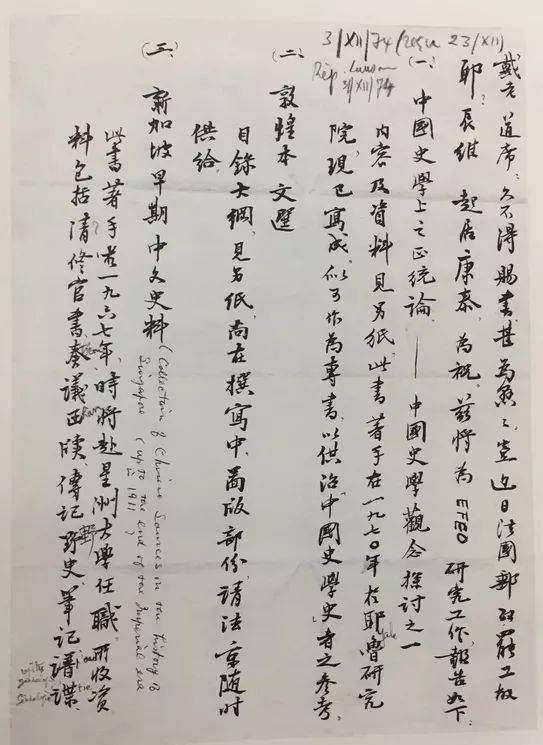 3/XII/74 (reçu 23/XII)
Rép. 31/XII/74
戴老道席:久不得賜書,甚為懸〻。豈近日法國郵政罷工故
耶?辰維 起居康泰 為祝。茲將為 EFEO 研究工作,報告如下:
(一)中國史學上之正統論 —— 中國史學觀念探討之一
內容及資料見另紙。此書著手在一九七〇年於耶魯研究
Yale
院,現已寫成。似可作為專書,以供治「中國史學史」者之參考。
(二)敦煌本 文選
目錄大綱,見另紙,尚在撰寫中。圖版部份,請法京隨時
供給
(三)新加坡早期中文史料
(Collection of Chinese Sources on the history of
Singapore (up to the end of the Imperial era
in 1911)
此書著手於一九六七年,時將赴星洲大學任職。所收資
料包括清修官書、奏議函牘、傳記野史、筆記譜諜、
野